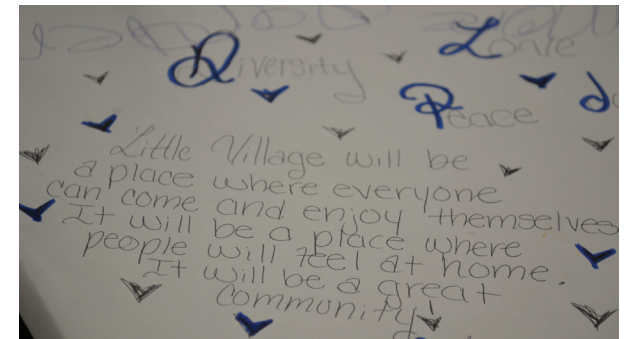 Diversity
Love
Peace
Little Village will be
a place where everyone
can come and enjoy themselves
It will be a place where
people will feel at home.
It will be a great
community!